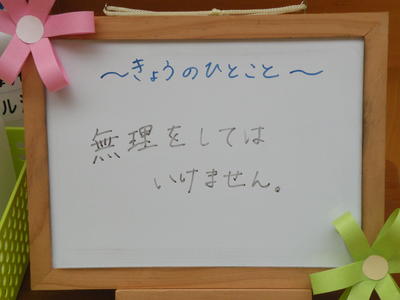 ～きょうのひとこと～
無理をしては
いけません。